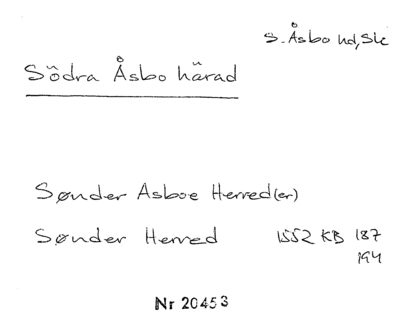 S. Åsbo hd, Sk
Södra Åsbo härad
Sønder Asboe Herred(er)
Sønder Herred 1552 KB 187
194
Nr 20453